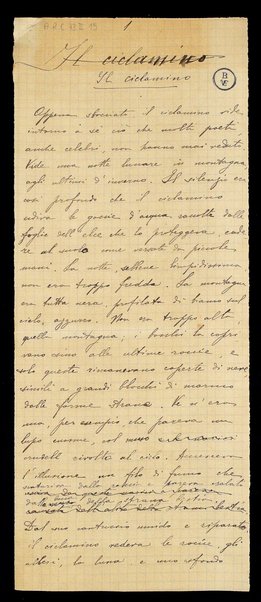 1
Il ciclamino
Il ciclamino
B
VE
Appena sbocciato il ciclamino vide
intorno a sè ciò che molti poeti,
anche celebri, non hanno mai veduto.
Vide una notte lunare in montagna
agli ultimi d'inverno. Il silenzio era
così profondo che il ciclamino
udiva le goccie d'acqua caschè dalle
foglie dell'elce che lo proteggeva, cade
re al suolo come versate da piccole
mani. La notte, sebbene limpidissima,
non era troppo fredda. La montagna
era tutta nera, profilata di bianco sul
cielo azzurro. Non era troppo alta,
quella montagna; i boschi la copri
vano sino alle ultime roccie, e
solo queste rimanevano coperte di neve
simili a grandi blocchi di marmo
dalle forme strane. Ve n'era
una, per esempio, che pareva un
lupo enorme, col muso
rivolto al cielo. Accresceva
l'illusione un filo di fumo che
dalle roccie e pareva esalato
dalla
Dal suo cantuccio umido e riparato
il ciclamino vedeva le roccie, gli
alberi, la luna e uno sfondo